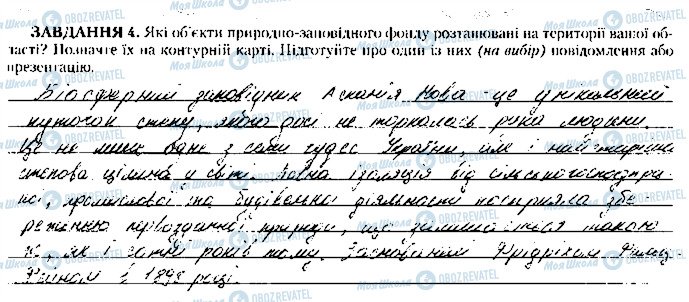 ЗАВДАННЯ 4. Які об'єкти природно-заповідного фонду розташовані на території вашої об-
ласті? Позначте їх на контурній карті. Підготуйте про один із них (на вибір) повідомлення або
презентацію.
Біосферний заповідник Асканія Нова - це унікальний
куточок степу, якого досі не торкалась рука людини.
Це не лише одне з семи чудес України, але і найстаріша
степова цілина у світі. Повна ізоляція від сільськогосподарсь
кої, промислової та будівельної діяльності посприяла збе
реженню первозданної природи, що залишається такою
ж, як і сотні років тому. Заснований Фрідріхом Фальц-
Фейном в 1898 році.